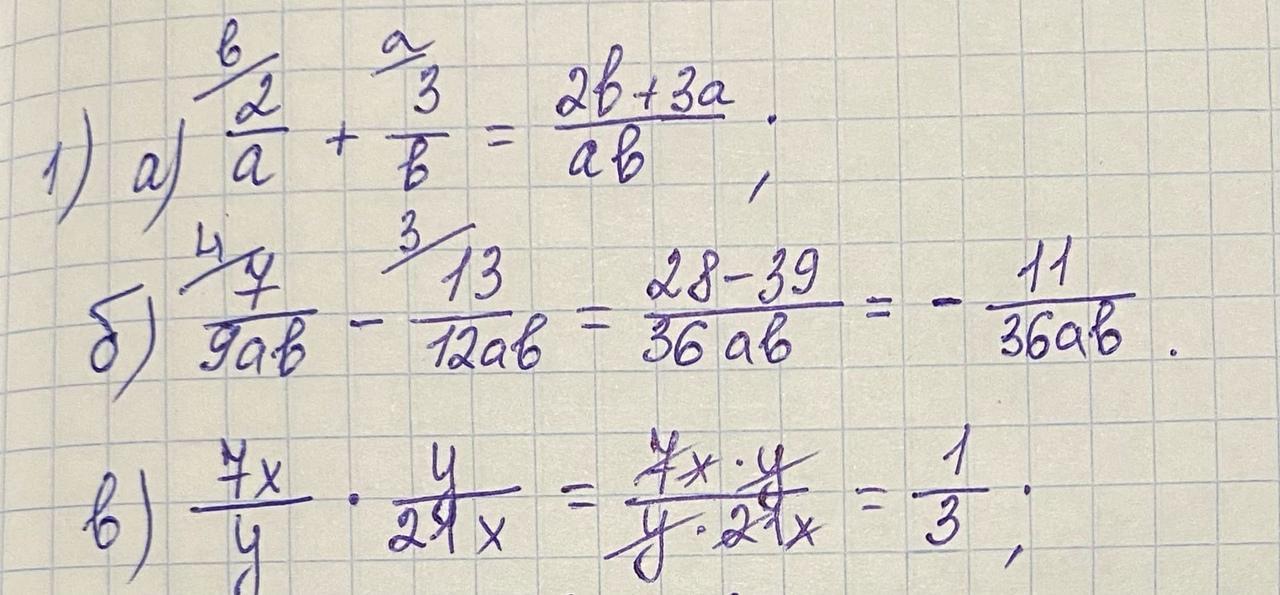 1) а) ᵇ/ 2/a + ᵃ/ 3/b = (2b+3a)/(ab) ;
б) ⁴/ 7/(9ab) - ³/ 13/(12ab) = (28-39)/(36ab) = - 11/(36ab) .
в) 7x/y · y/(21x) = (7x·y)/(y·21x) = 1/3 ;